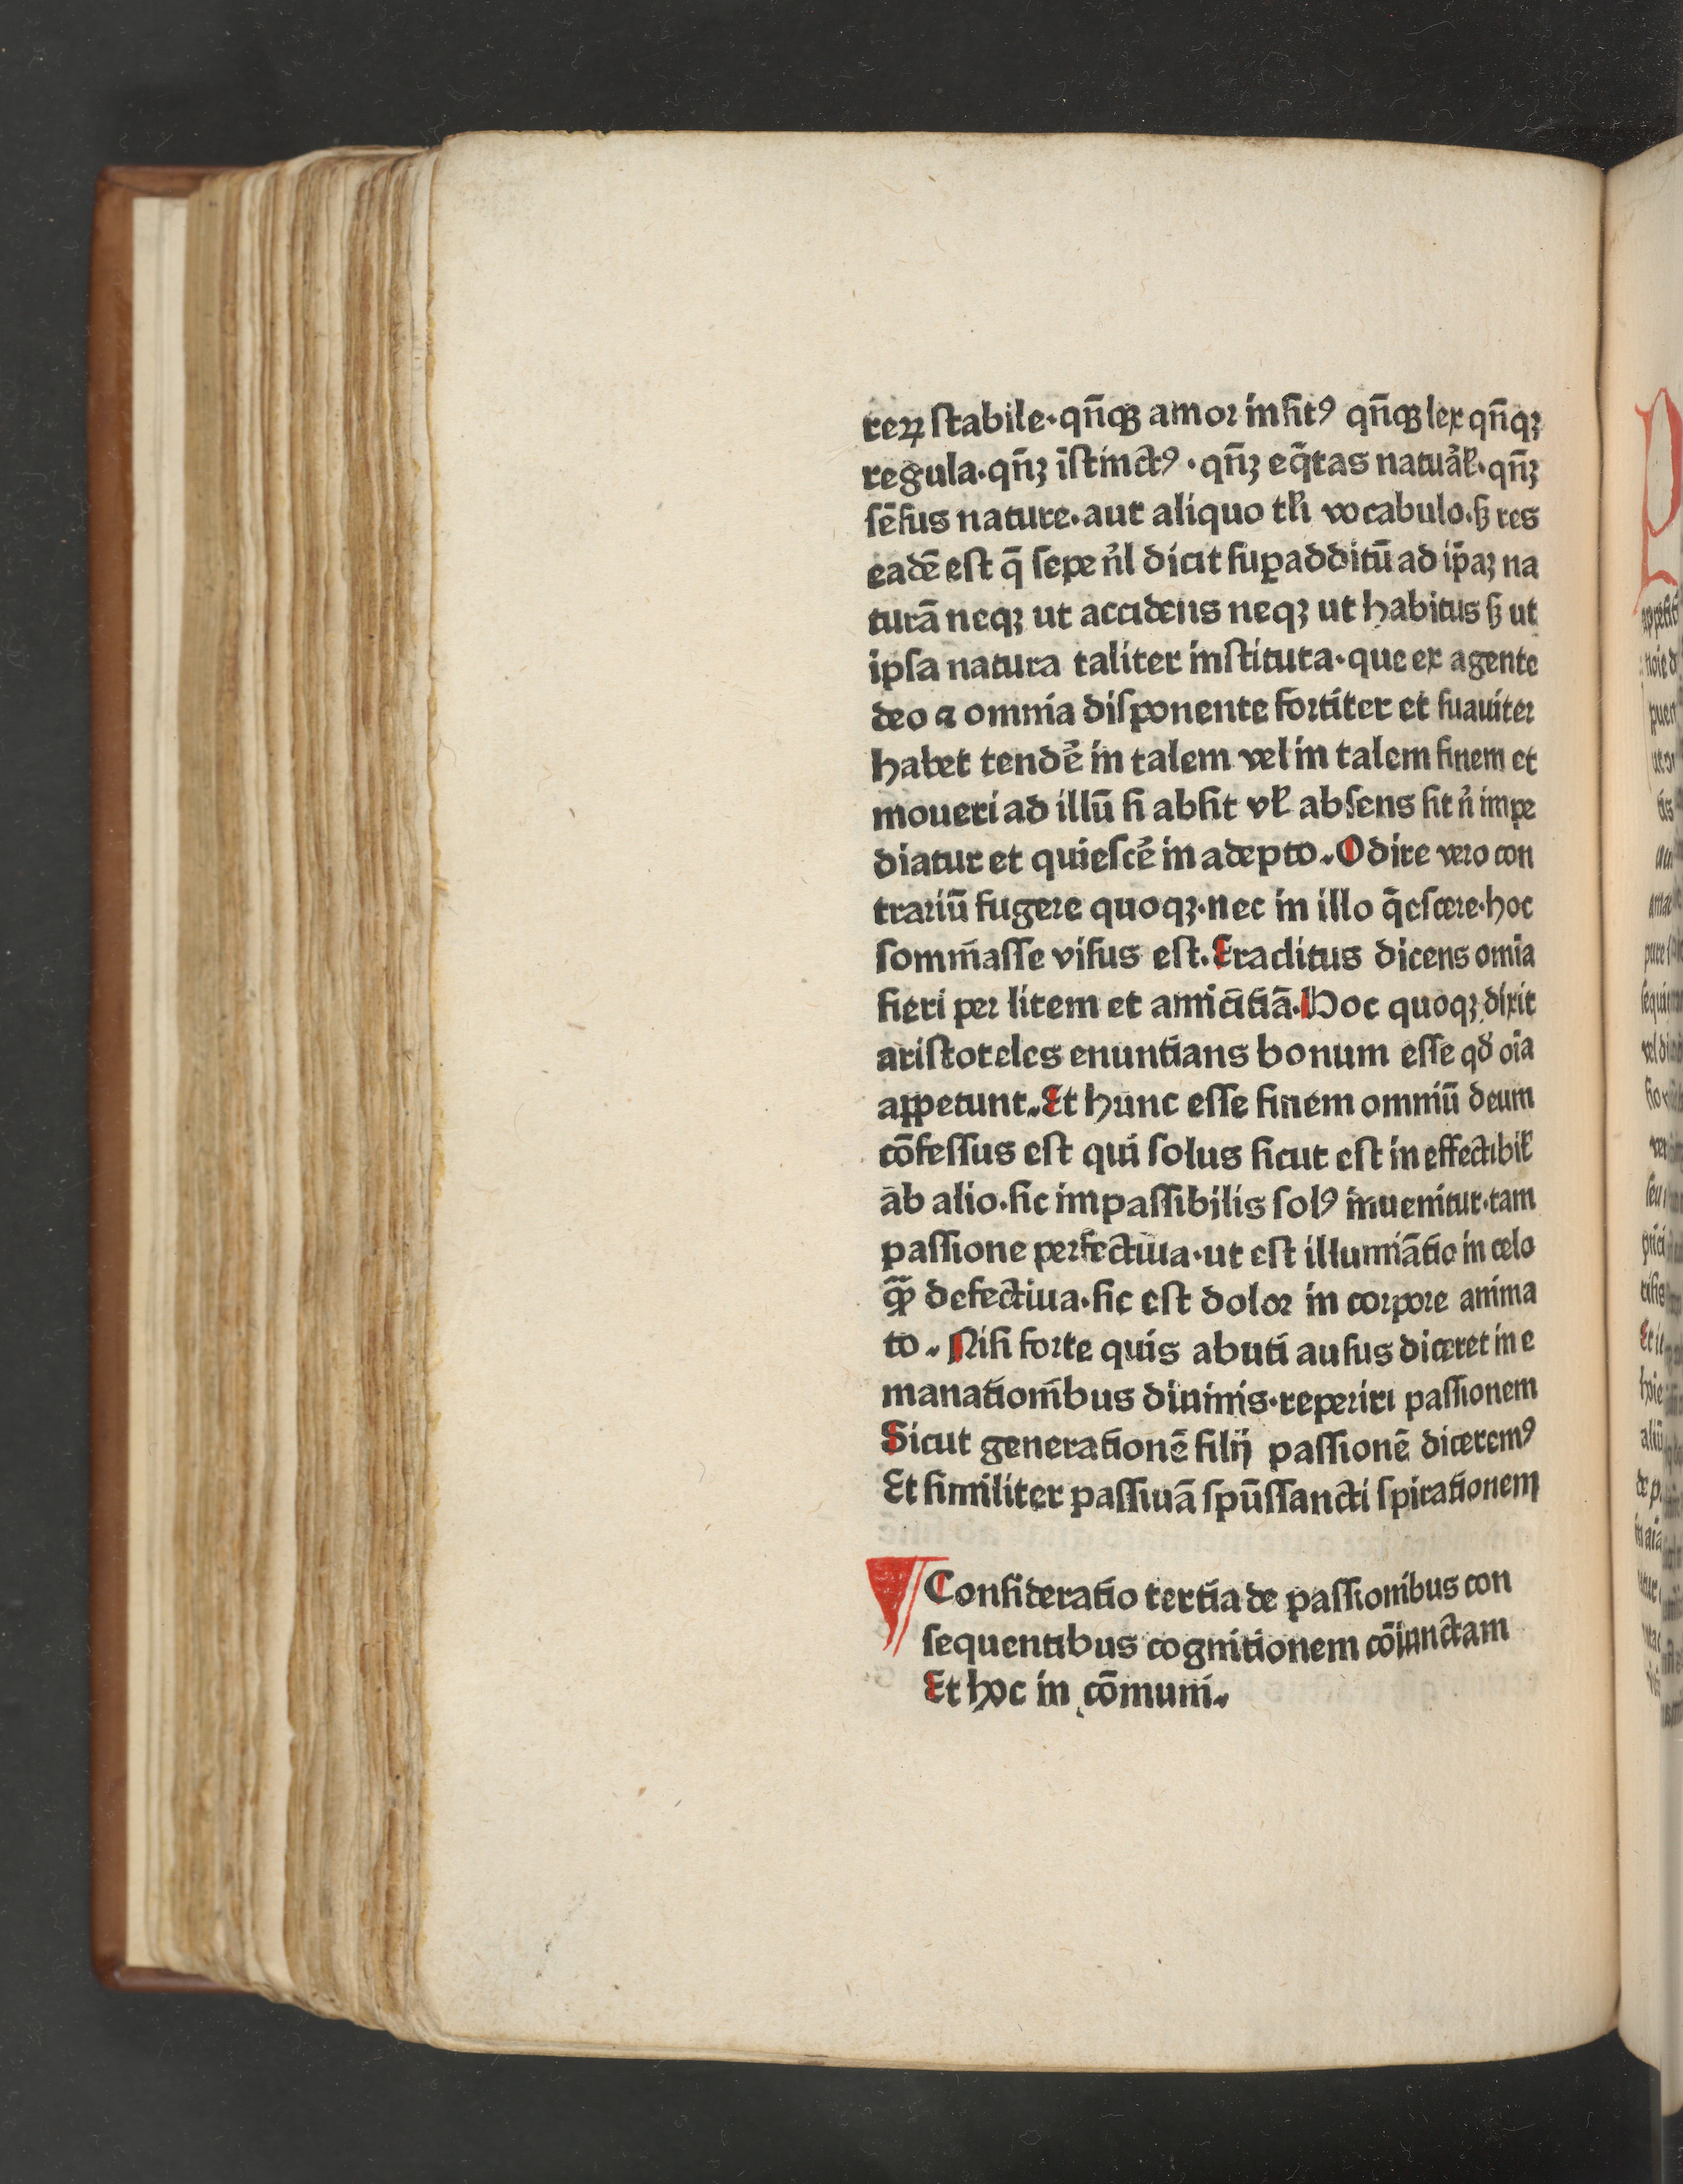 reꝝ ſtabile·qn̄qꝫ amoꝛ inſitꝰ qn̄qꝫ lex qn̄qꝫ
regula·qn̄ꝫ īſtinctꝰ·qn̄ꝫ eq̄tas natuãł·qn̄ꝫ
ſēſus nature·aut aliquo tƚi vocabulo·ſꝫ res
eadē eſt q̄ ſepe n̄l dicit ſuꝑadditū ad ip̄aꝫ na
turā neqꝫ ut accidens neqꝫ ut habitus ſꝫ ut
ipſa natura taliter inſtituta·que ex agente
deo ⁊ omnia diſponente foꝛtiter et ſuauiter
habet tendē in talem vel in talem finem et
moueri ad illū ſi abſit vł abſens ſit n̄ impe
diatur et quieſcē in adepto. Odire vero con
trariū fugere quoqꝫ·nec in illo q̄eſcere·hoc
ſomm̄aſſe viſus eſt. Eraclitus dicens omīa
fieri per litem et amicitiā. Hoc quoqꝫ dixit
ariſtoteles enuntians bonum eſſe qd̄ oīa
appetunt. Et hunc eſſe finem omniū deum
cōfeſſus eſt qui ſolus ſicut eſt in effectibił
ab alio·ſic impaſſibilis ſolꝰ inuenitur·tam
paſſione perfectiua·ut eſt illumīātio in celo
qꝫ̄ defectiua·ſic eſt doloꝛ in coꝛpoꝛe anima
to. Niſi foꝛte quis abuti auſus diceret in e
manationibus diuinis·reperiri paſſionem
Sicut generationē filij paſſionē diceremꝰ
Et ſimiliter paſſiuā ſpūſſancti ſpirationem
Conſideratio tertia de paſſionibus con
ſequentibus cognitionem cōiunctam
Et hoc in cōmuni.